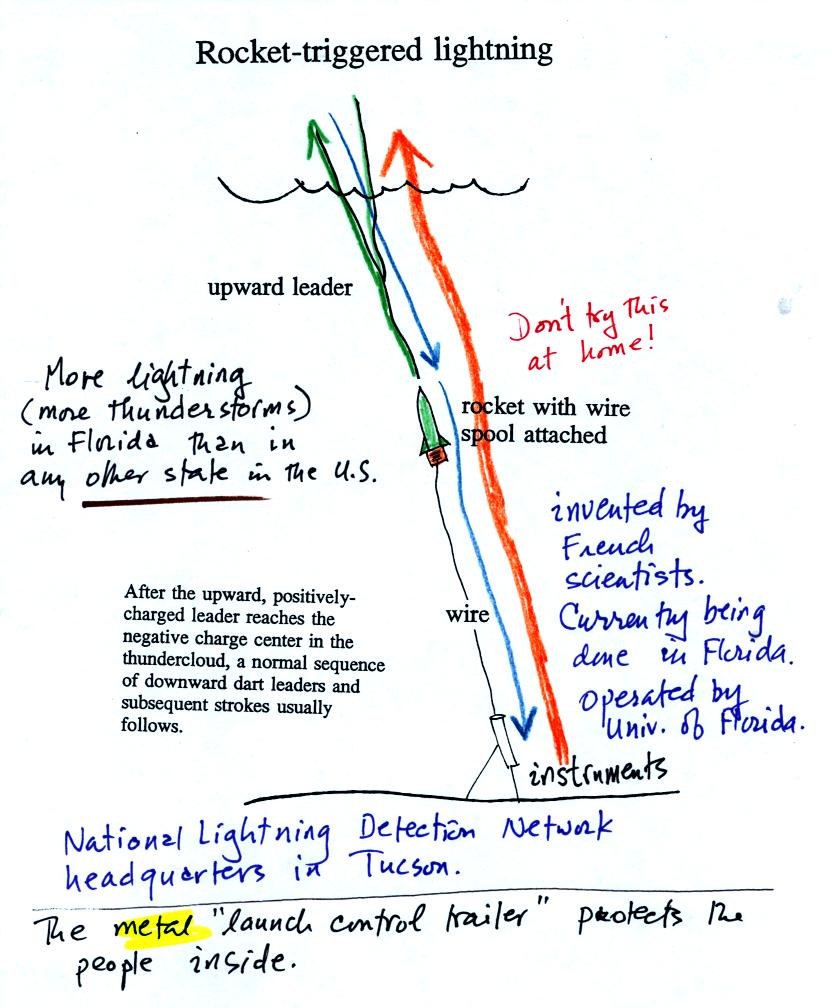 Rocket-triggered lightning
upward leader
Don't try this
at home!
More lightning
(more thunderstorms)
in Florida than in
any other state in the U.S.
rocket with wire
spool attached
invented by
French
scientists.
Currently being
done in Florida.
operated by
Univ. of Florida.
After the upward, positively-
charged leader reaches the
negative charge center in the
thundercloud, a normal sequence
of downward dart leaders and
subsequent strokes usually
follows.
wire
instruments
National Lightning Detection Network
headquarters in Tucson.
The metal "launch control trailer" protects the
people inside.